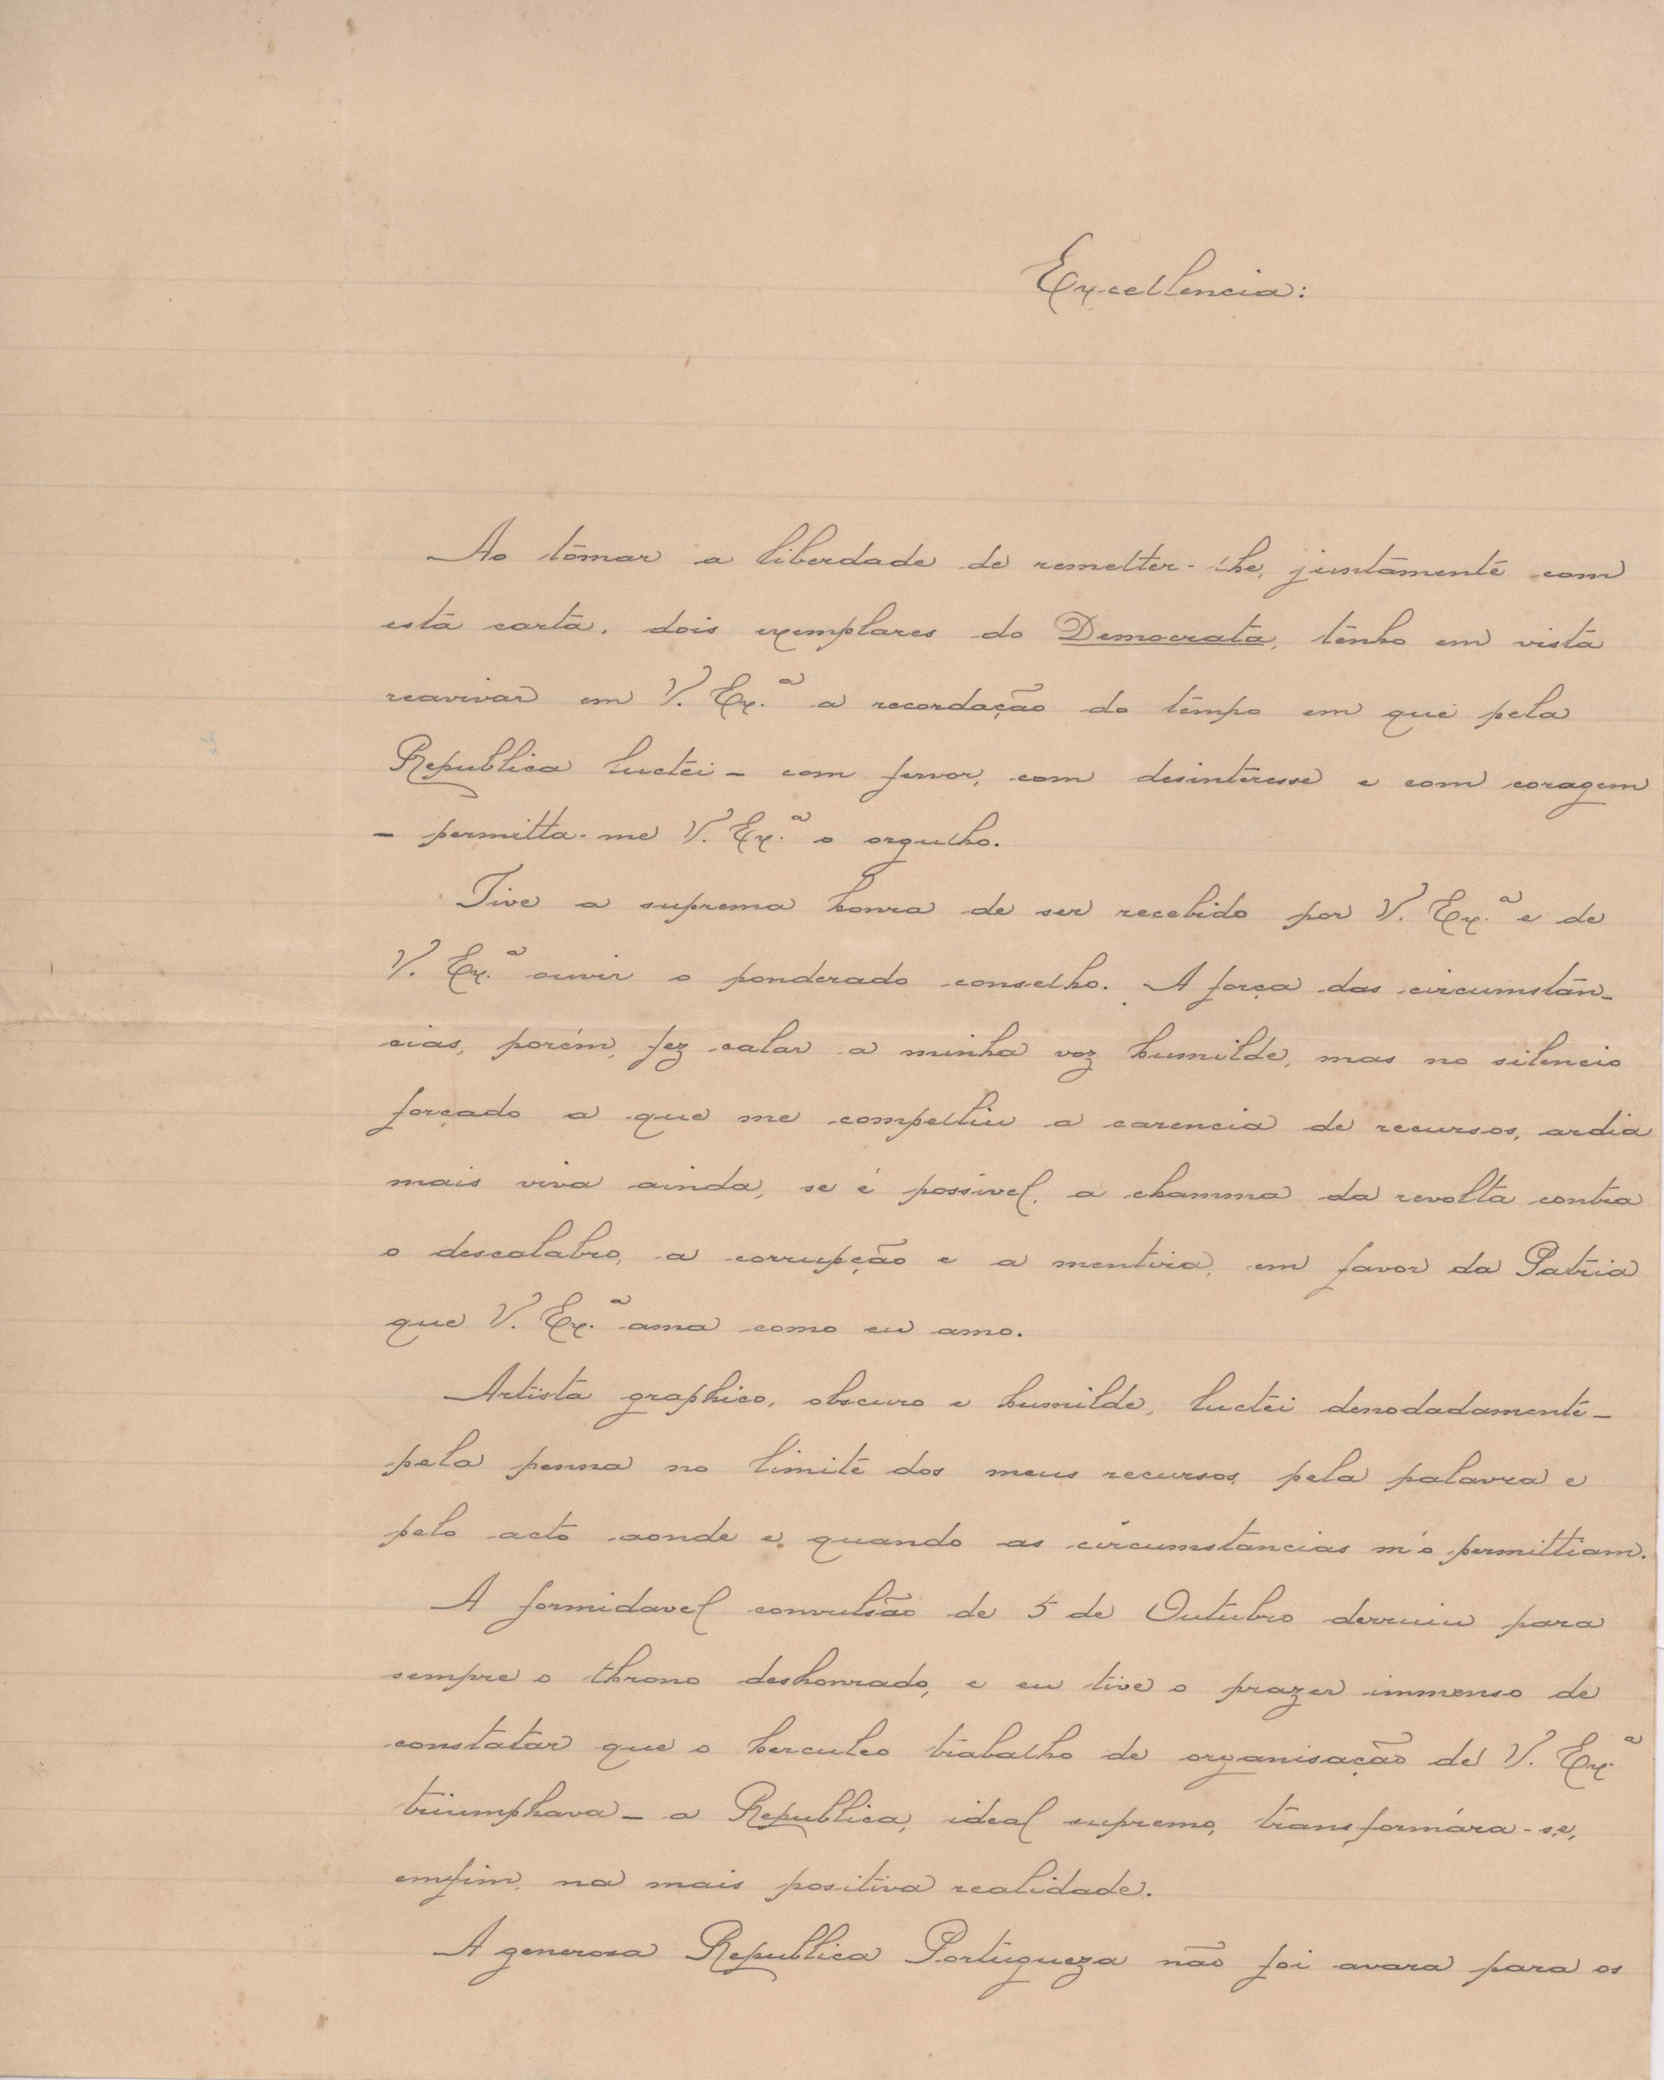 Excellencia:
Ao tomar a liberdade de remetter-lhe, juntamente com
esta carta, dois exemplares do Democrata, tenho em vista
reavivar em V. Ex.ª a recordação do tempo em que pela
Republica luctei – com fervor, com desinteresse e com coragem
– permitta-me V. Ex.ª o orgulho.
Tive a suprema honra de ser recebido por V. Ex.ª e de
V. Ex.ª ouvir o ponderado conselho. A força das circumstan-
cias, porém, fez calar a minha voz humilde, mas no silencio
forçado a que me compelliu a carencia de recursos, ardia
mais viva ainda, se é possivel, a chamma da revolta contra
o descalabro, a corrupção e a mentira, em favor da Patria
que V. Ex.ª ama como eu amo.
Artista graphico, obscuro e humilde, luctei denodadamente –
pela penna no limite dos meus recursos, pela palavra e
pelo acto aonde e quando as circumstancias m'o permittiam.
A formidavel convulsão de 5 de Outubro derruiu para
sempre o throno deshonrado, e eu tive o prazer immenso de
constatar que o herculeo trabalho de organisação de V. Ex.ª
triumphava – a Republica, ideal supremo, transformára-se,
emfim, na mais positiva realidade.
A generosa Republica Portugueza não foi avara para os